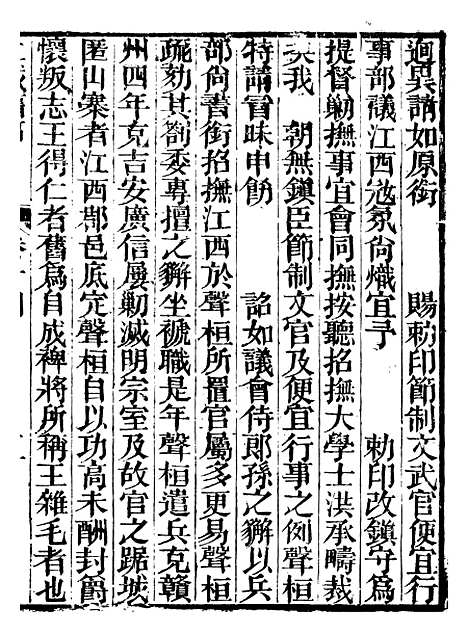 迥異請如原銜　賜勅印節制文武官便宜行
事部議江西冦氛尙熾宜予　勅印改鎮守爲
提督勦撫事宜會同撫按聽招撫大學士洪承疇裁
奐我　朝無鎮臣節制文官及便宜行事之例聲桓
特請冒昧申飭　詔如議會侍郎孫之獬以兵
部尙書銜招撫江西於聲桓所置官屬多更易聲桓
疏劾其劄委專擅之獬坐褫職是年聲桓遣兵克贛
州四年克吉安廣信屢勦滅明宗室及故官之踞城
匿山寨者江西郡邑底定聲桓自以功高未酬封爵
懷叛志王得仁者舊爲自成裨將所稱王雜毛者也